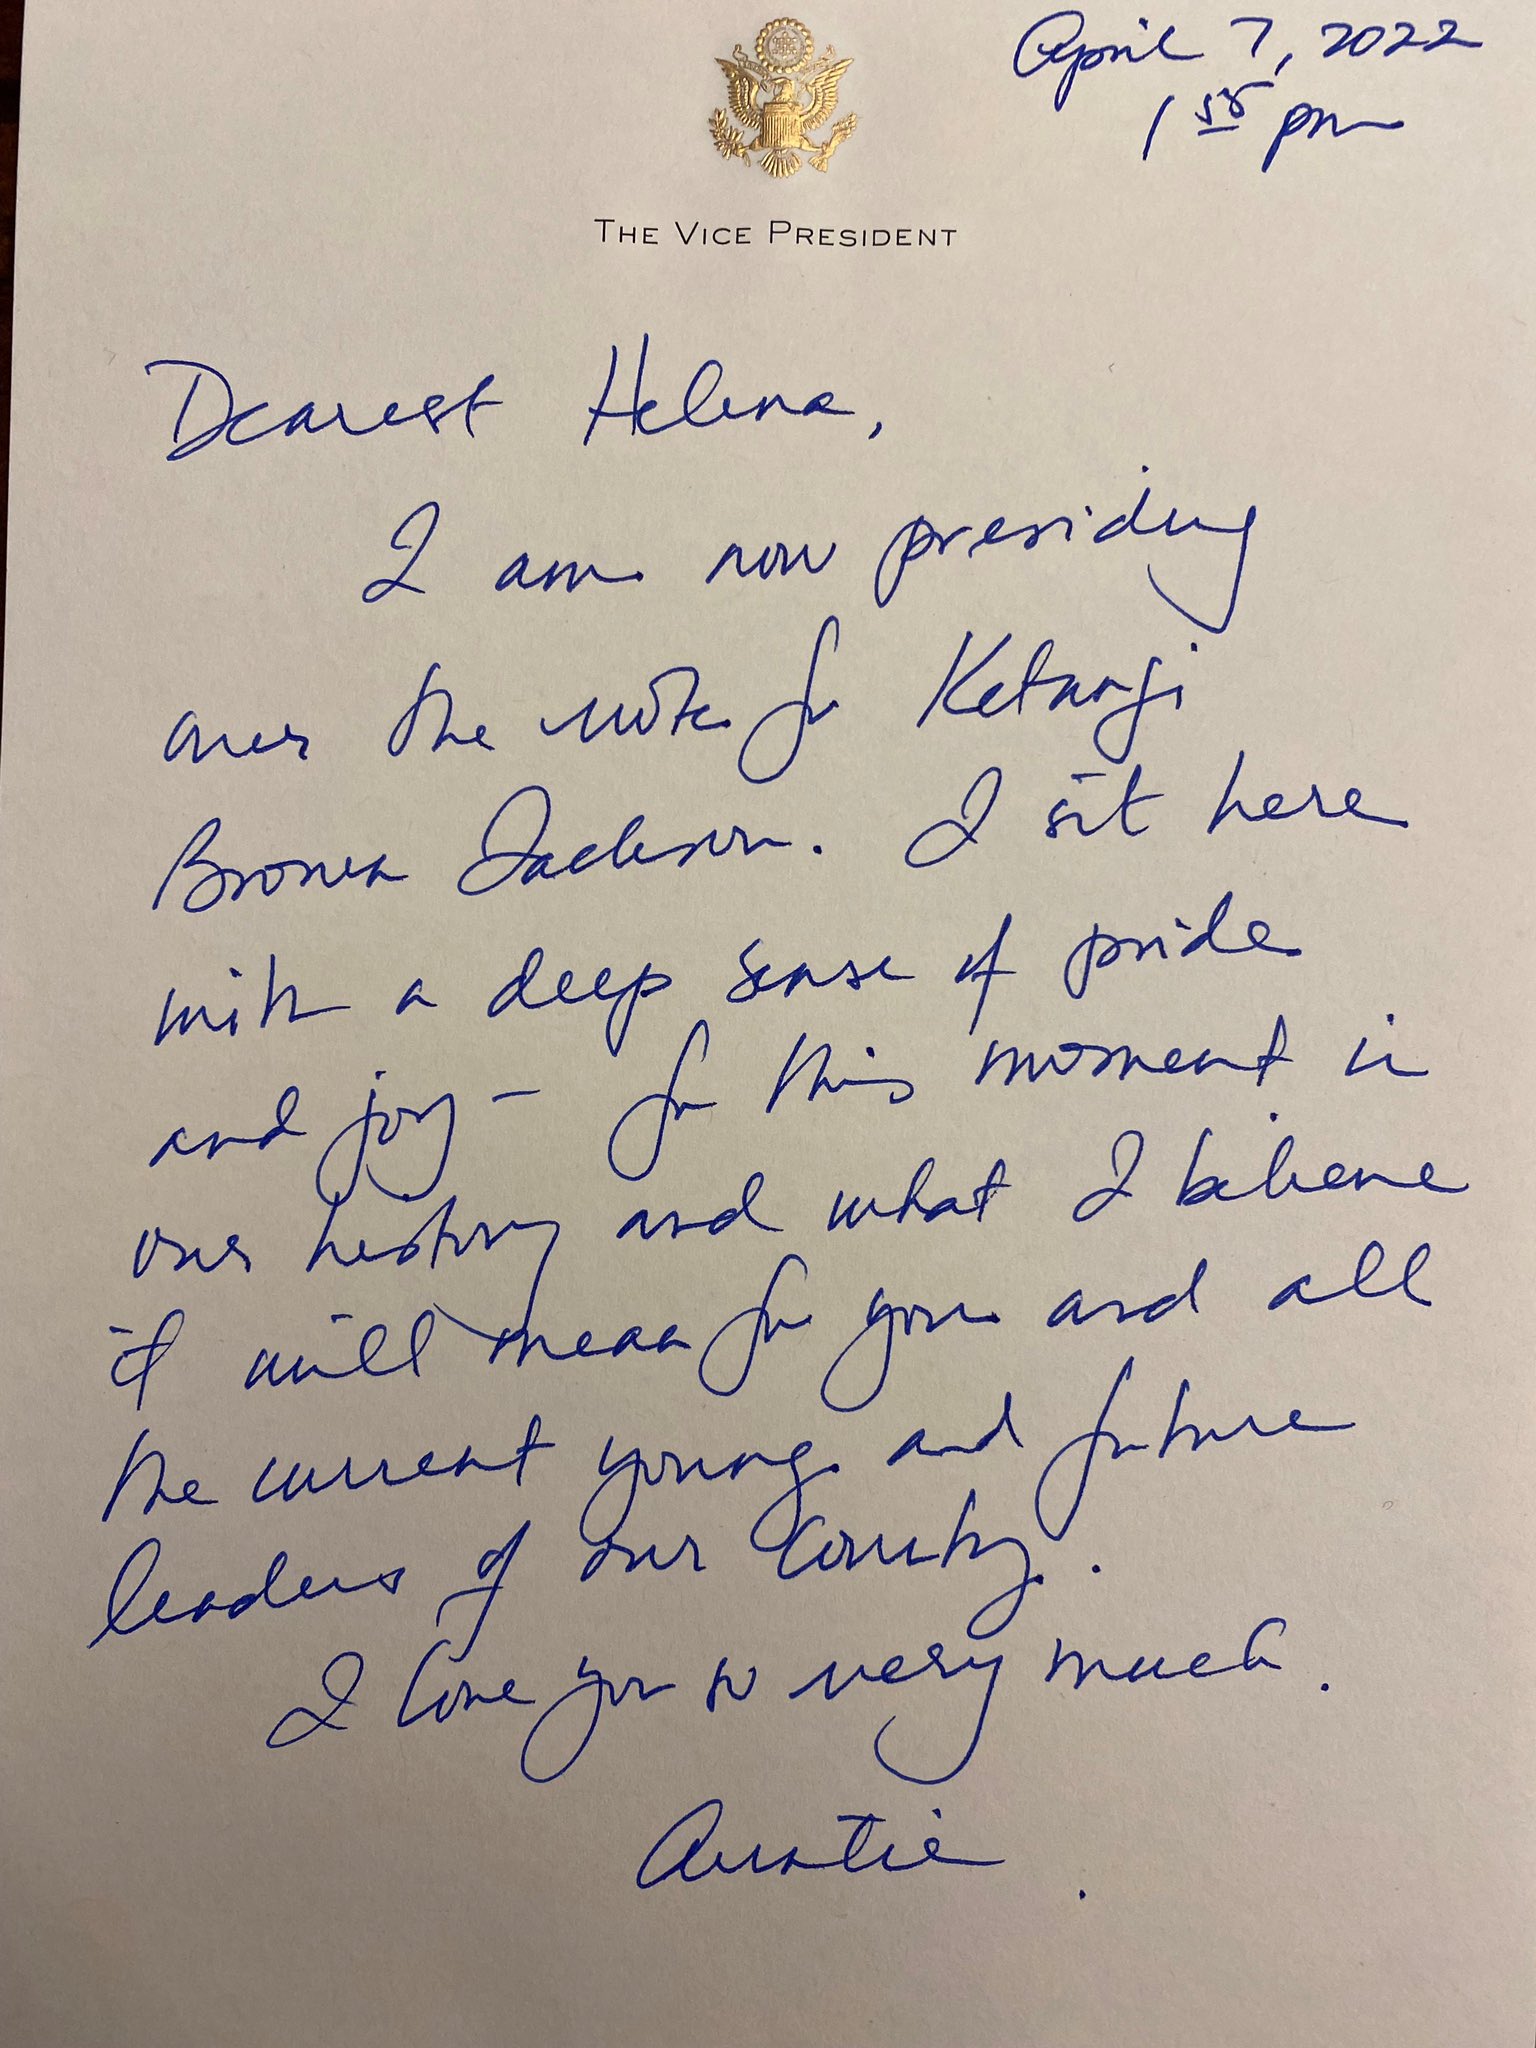 April 7, 2022
1 58 pm
THE VICE PRESIDENT
Dearest Helena,
I am now presiding
over the vote for Ketanji
Brown Jackson. I sit here
with a deep sense of pride
and joy - for this moment in
our history and what I believe
it will mean for you and all
the current young and future
leaders of our country.
I love you so very much.
Auntie.